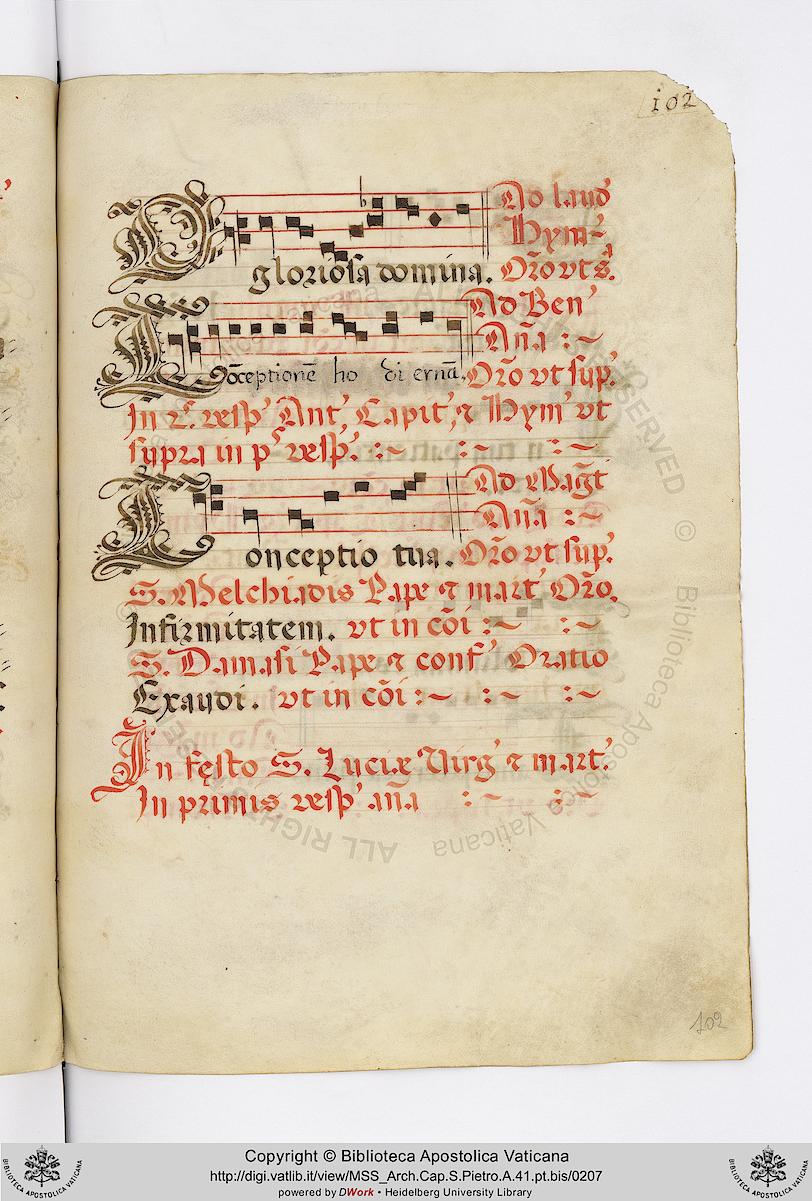 102
Ad laud'
Hym~
O gloriosa domina. Or̃o vt s̃.
Ad Ben'
Añа :~
Cõceptionẽ ho di ernã. Or̃o vt sup'.
In 2.' vesp' Ant', Capit', & Hym' vt
supra in p.' vesp'. :~ :~ :~
Ad Mag̃t
Añа :~
Conceptio tua. Or̃o vt sup'.
S. Melchiadis Pape & mart' Or̃o.
Infirmitatem. vt in cõi :~ :~
S. Damasi Pape & conf' Oratio
Exaudi. vt in cõi :~ :~ :~
In festo S. Luciæ Virg' & mart'.
In primis vesp' aña :~ :~
102
ALL RIGHTS RESERVED © Biblioteca Apostolica Vaticana
Copyright © Biblioteca Apostolica Vaticana
http://digi.vatlib.it/view/MSS_Arch.Cap.S.Pietro.A.41.pt.bis/0207
powered by DWork • Heidelberg University Library
BIBLIOTECA APOSTOLICA VATICANA
BIBLIOTECA APOSTOLICA VATICANA